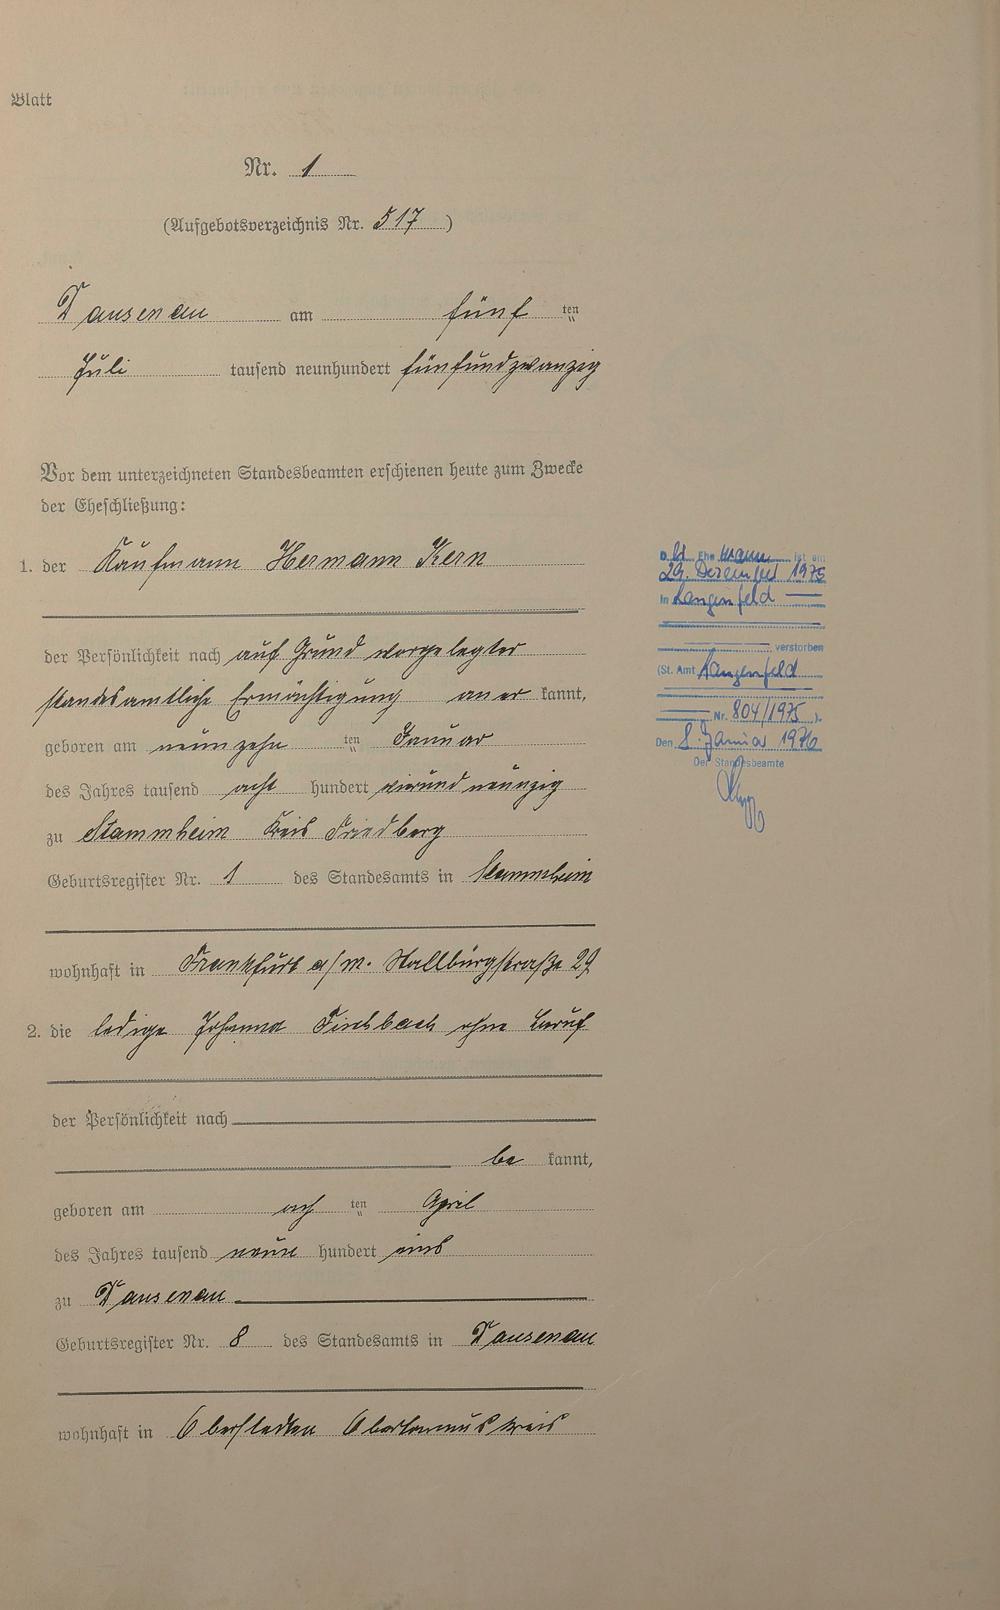 Blatt
Nr. 1
(Aufgebotsverzeichnis Nr. 517)
Dausenau am fünf ten
Juli tausend neunhundert fünfundzwanzig
Vor dem unterzeichneten Standesbeamten erschienen heute zum Zwecke
der Eheschließung:
1. der Kaufmann Hermann Kern
der Persönlichkeit nach auf Grund vorgelegter
standesamtliche Ermächtigung aner kannt,
geboren am neunzehn ten Januar
des Jahres tausend acht hundert vierundneunzig
zu Stammheim Kreis Friedberg
Geburtsregister Nr. 1 des Standesamts in Stammheim
wohnhaft in Frankfurt a/m. Wallburgstraße 29
2. die ledige Johanna ohne Beruf
der Persönlichkeit nach
be kannt,
geboren am ach ten April
des Jahres tausend neun hundert eins
zu Dausenau
Geburtsregister Nr. 8 des Standesamts in Dausenau
wohnhaft in Oberstedten Obertaunuskreis
D er Ehe mann ist am
29. Dezember 1975
in Langenfeld
verstorben
(St. Amt Langenfeld
Nr. 804/1975 ).
Den 8. Januar 1976
Der Standesbeamte